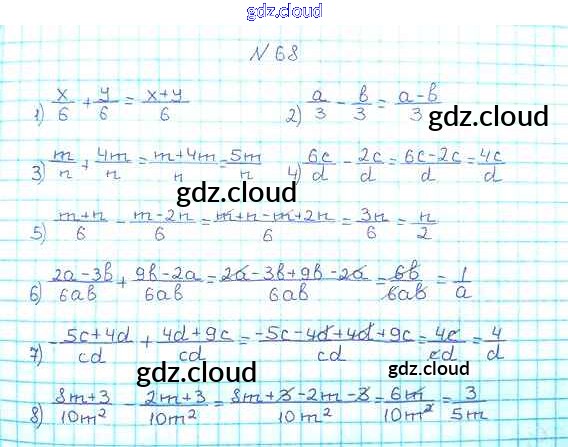 gdz.cloud
N 68
1) x/6 + y/6 = x+y/6 2) a/3 - b/3 = a-b/3
gdz.cloud
3) m/n + 4m/n = m+4m/n = 5m/n 4) 6c/d - 2c/d = 6c-2c/d = 4c/d
gdz.cloud
5) m+n/6 - m-2n/6 = m+n-m+2n/6 = 3n/6 = n/2
6) 2a-3b/6ab + 9b-2a/6ab = 2a-3b+9b-2a/6ab = 6b/6ab = 1/a
gdz.cloud
7) -5c+4d/cd + 4d+9c/cd = -5c-4d+4d+9c/cd = 4c/cd = 4/d
gdz.cloud
8) 8m+3/10m² - 2m+3/10m² = 8m+3-2m-3/10m² = 6m/10m² = 3/5m
gdz.cloud